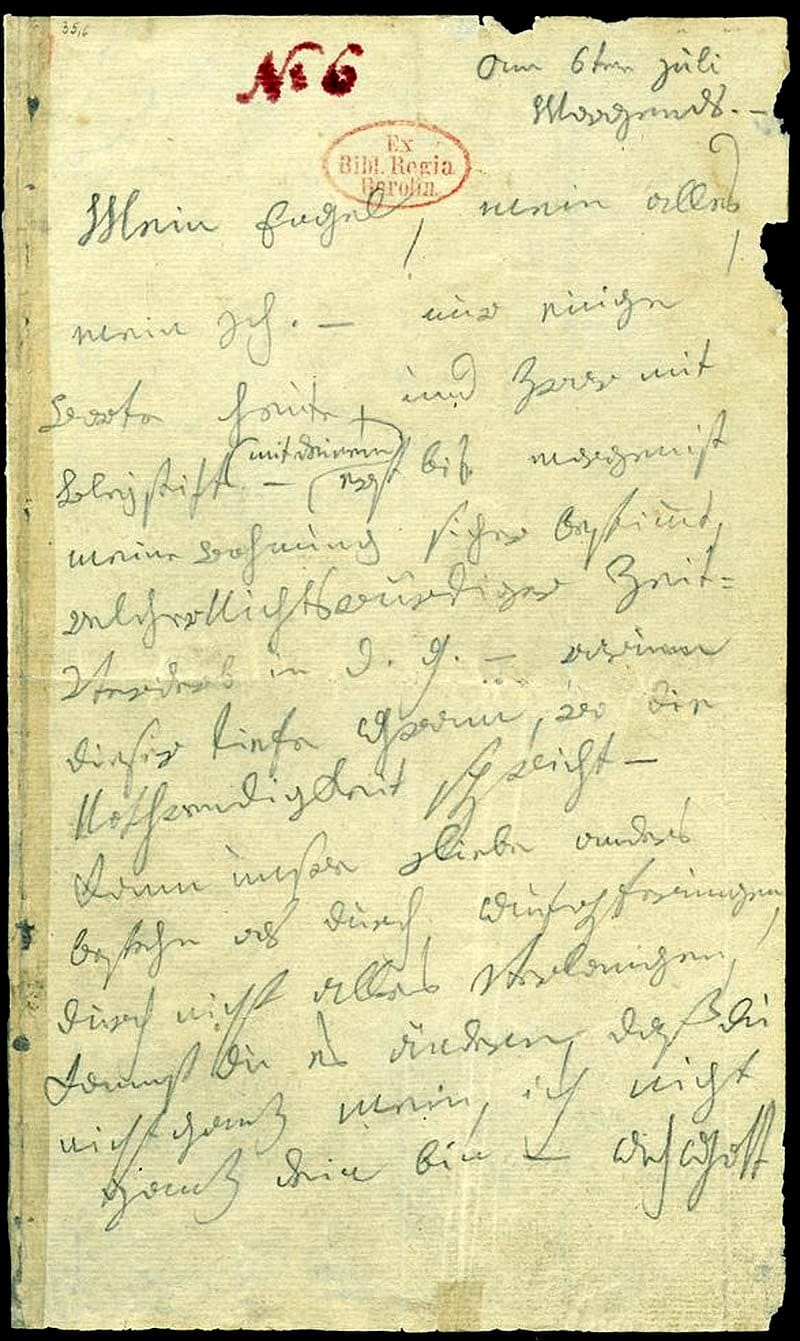 35,6
No 6
am 6ten Juli
Morgends. –
Ex
Bibl. Regia
Berolin.
Mein Engel, mein alles,
mein Ich. – nur einige
Worte heute, und zwar mit
Bleystift – (mit deinem)
erst bis morgen ist
meine wohnung sicher bestimt,
welcher Nichtswürdiger Zeit=
Verderb in d. g. – warum
dieser tiefe Gram, wo die
Nothwendigkeit spricht –
Kann unsre Liebe anders
bestehn als durch Aufopferungen,
durch nicht alles Verlangen,
Kannst du es ändern, daß du
nicht ganz mein, ich nicht
ganz dein bin – Ach Gott